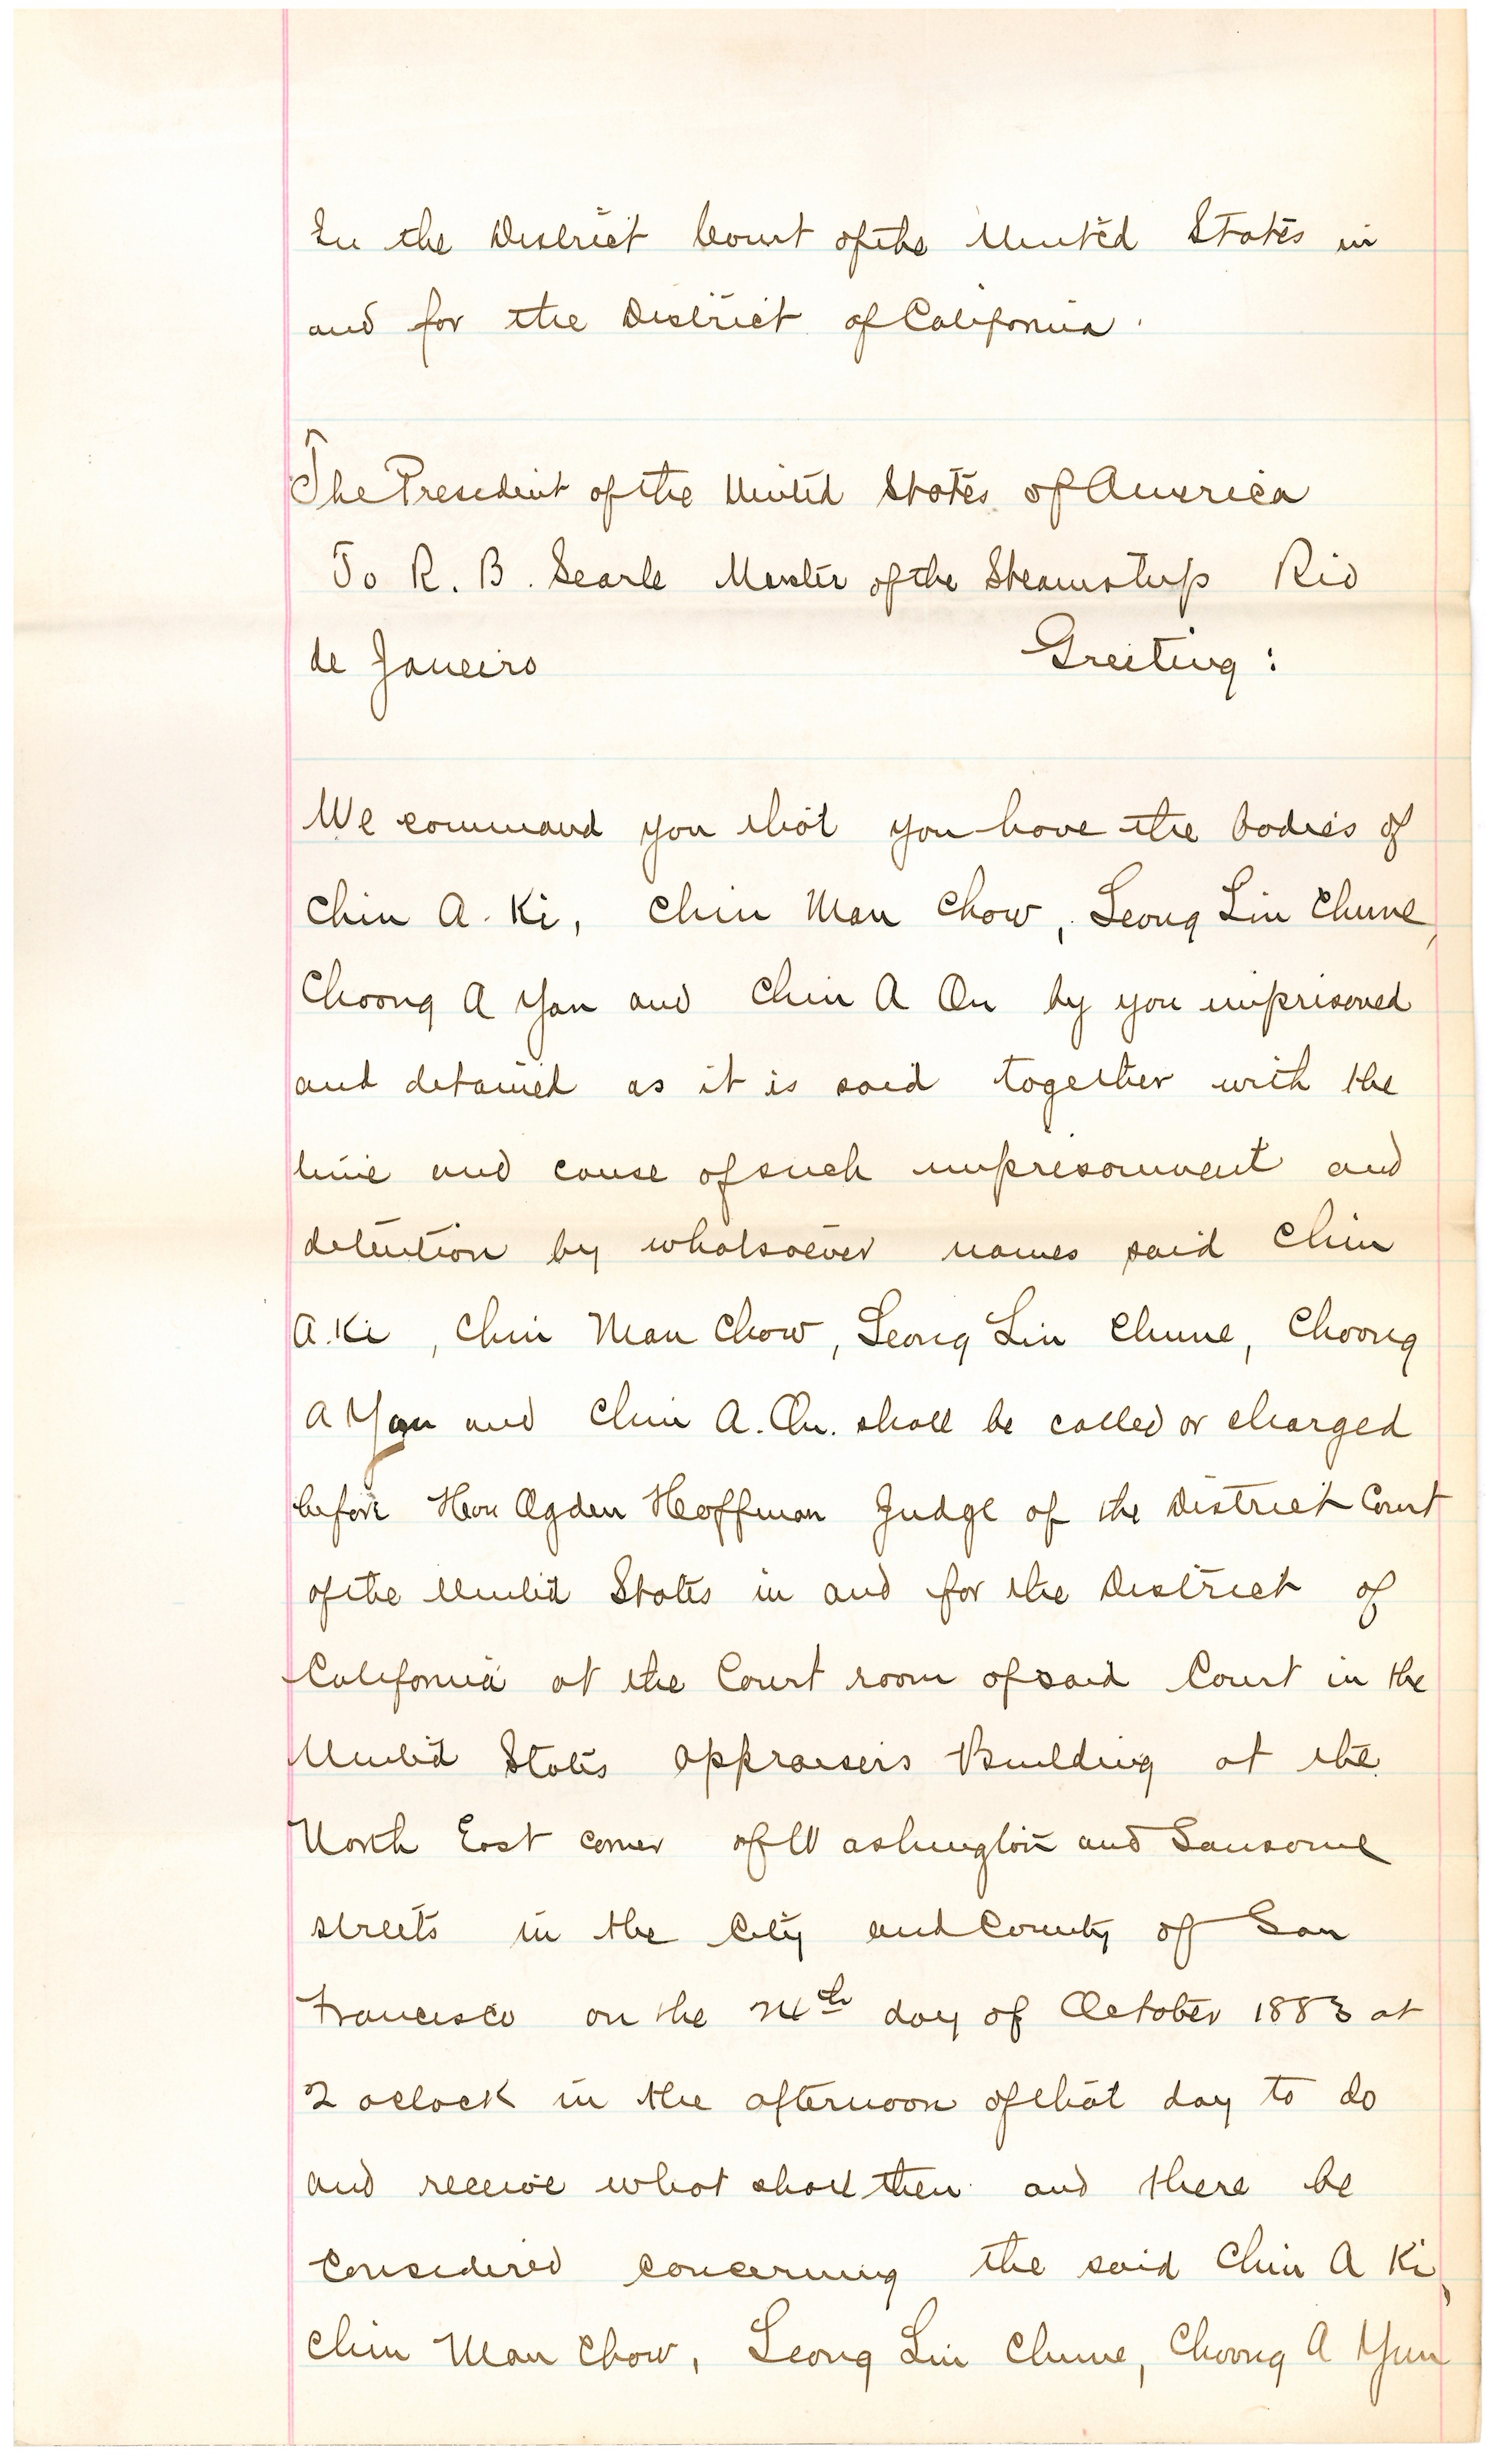 In the District Court of the United States in
and for the District of California.
The President of the United States of America
To R. B. Searle Master of the Steamship Rio
de Janeiro Greeting:
We command you that you have the bodies of
Chin A. Ki, Chin Man Chow, Leong Lin Chune,
Choong A Yan and Chin A On by you imprisoned
and detained as it is said together with the
time and cause of such imprisonment and
detention by whatsoever names said Chin
A. Ki, Chin Man Chow, Leong Lin Chune, Choong
A Yan and Chin A. On. shall be called or charged
before Hon Ogden Hoffman Judge of the District Court
of the United States in and for the District of
California at the Court room of said Court in the
United States Appraisers Building at the
North East corner of Washington and Sansome
streets in the City and County of San
Francisco on the 24th day of October 1883 at
2 oclock in the afternoon of that day to do
and receive what shall then and there be
considered concerning the said Chin A Ki,
Chin Man Chow, Leong Lin Chune, Choong A Yun